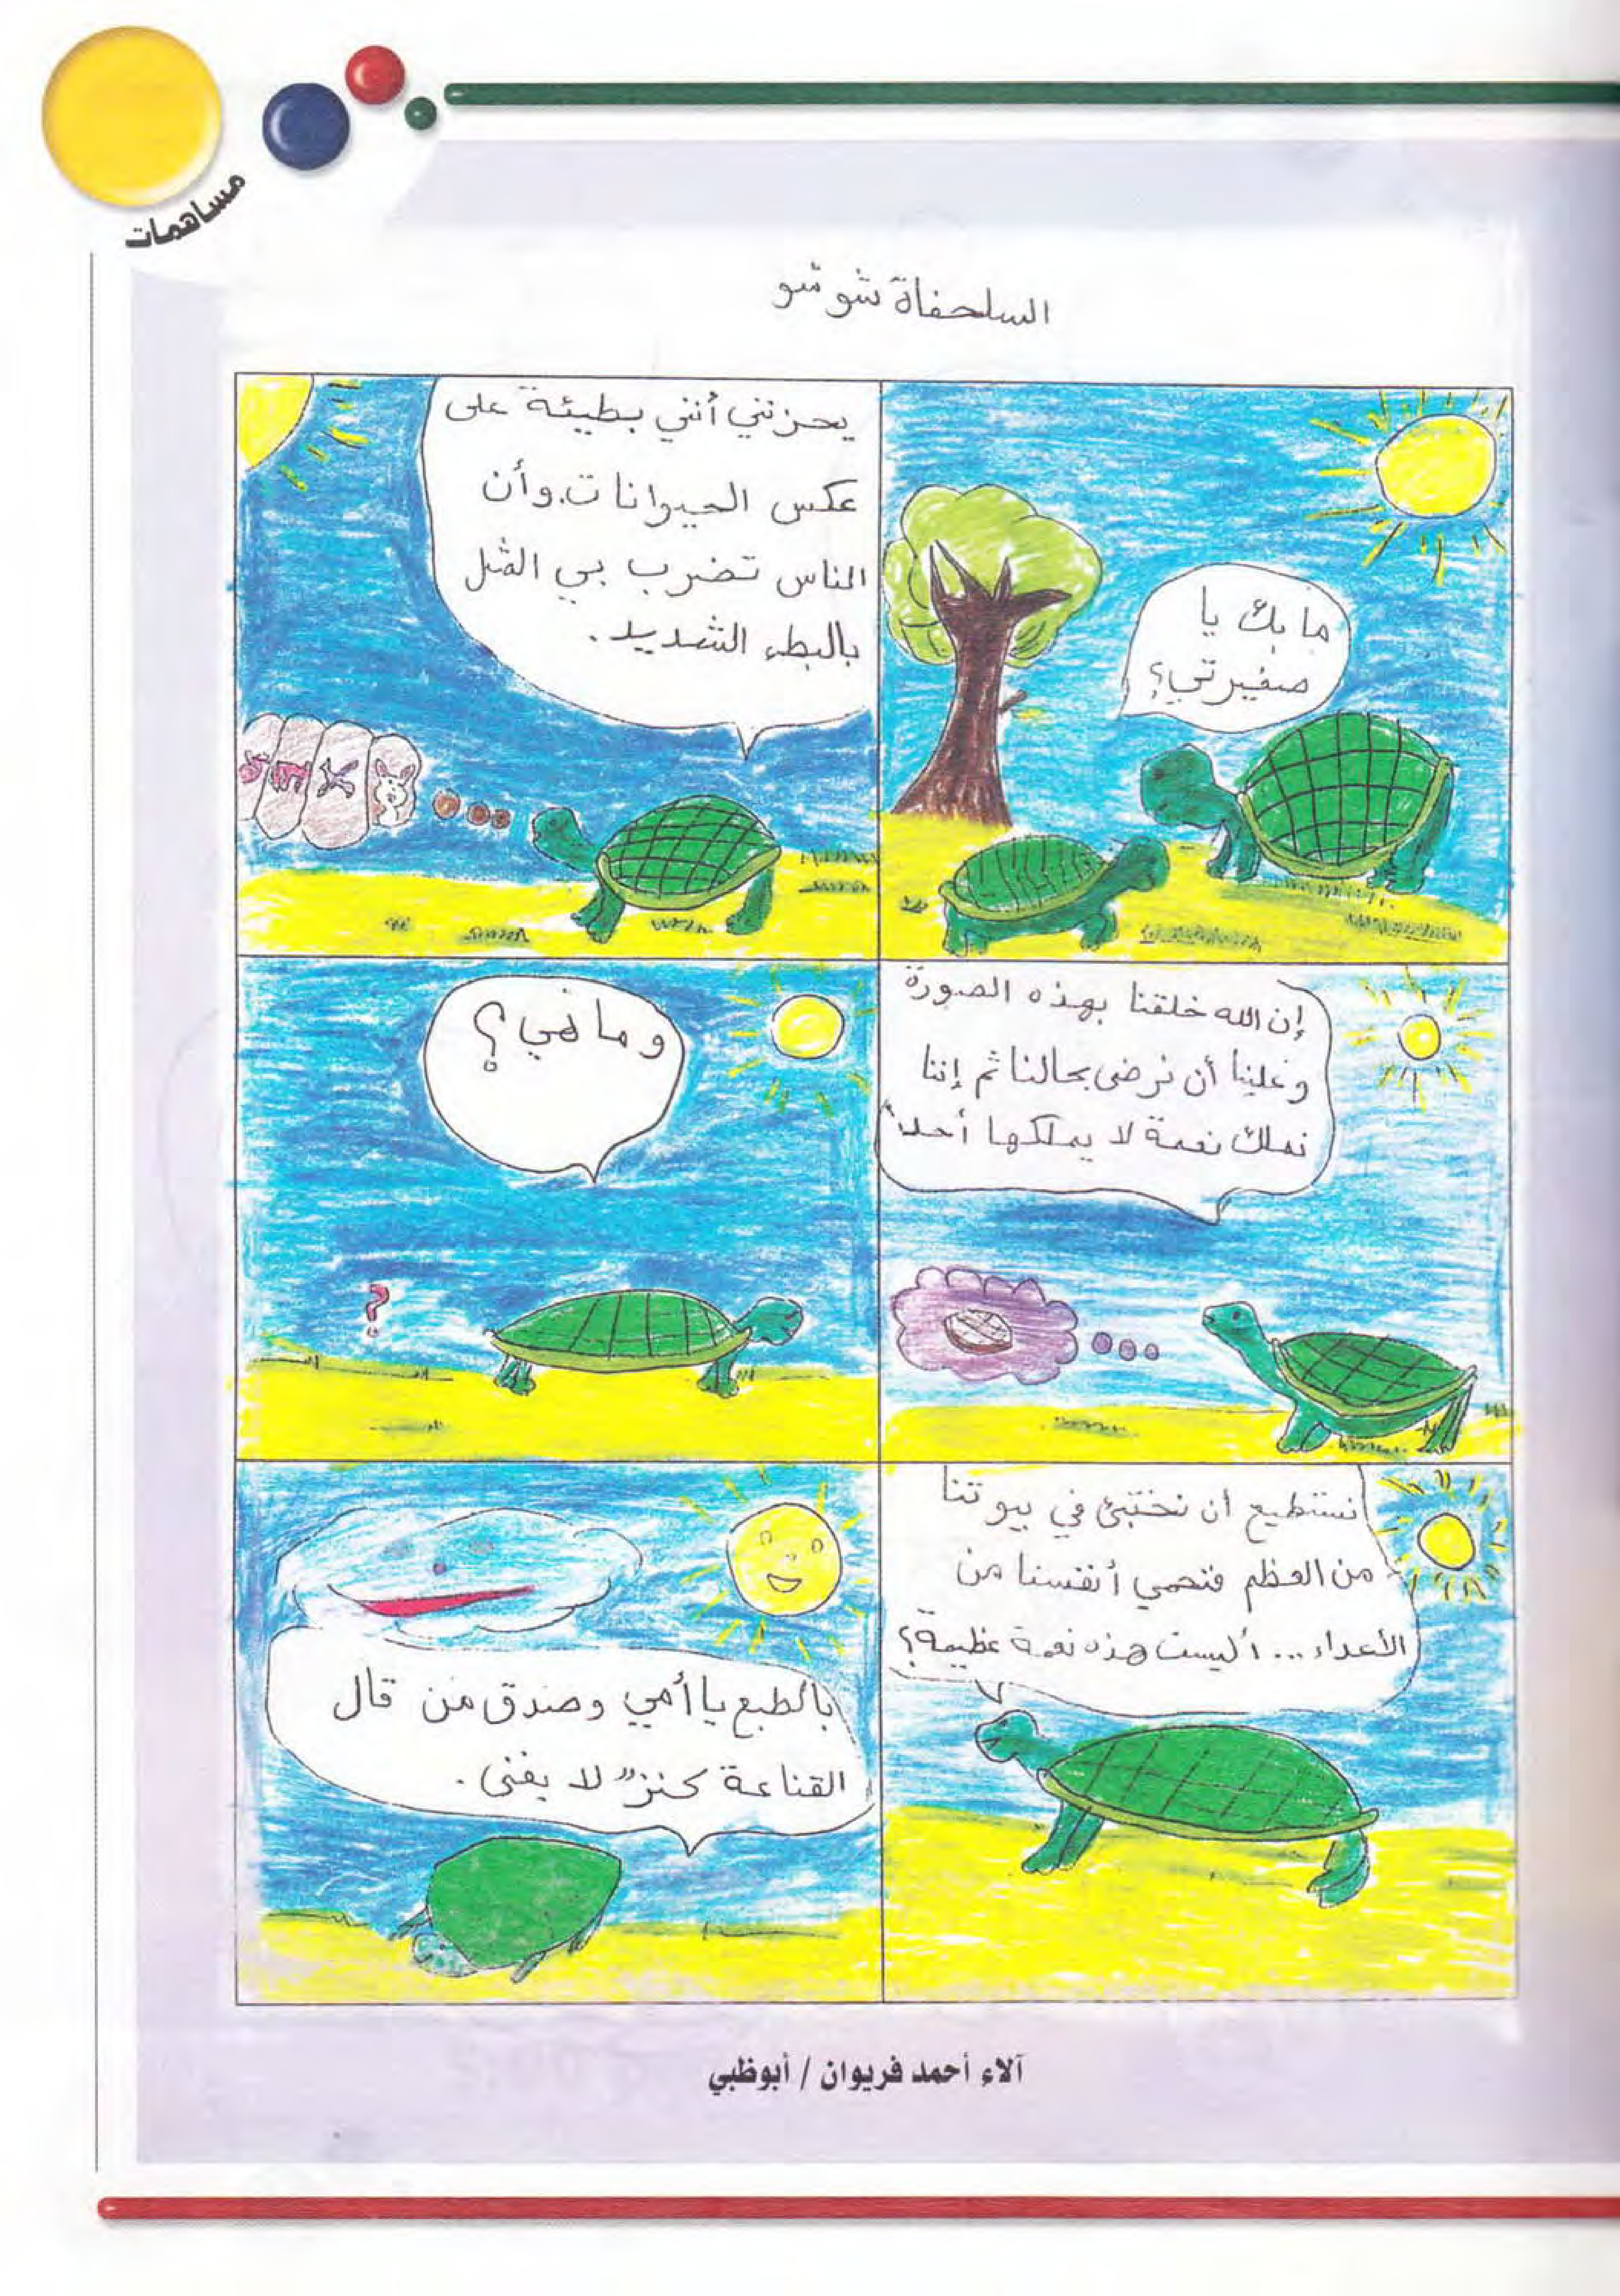 مساهمات
السلحفاة شوشو
ما بك يا
صغيرتي؟
يحزنني أنني بطيئة على
عكس الحيوانات. وأن
الناس تضرب بي المثل
بالبطء الشديد.
إن الله خلقنا بهذه الصورة
وعلينا أن نرضى بحالنا ثم إننا
نملك نعمة لا يملكها أحداً
وما هي؟
?
نستطيع أن نختبئ في بيوتنا
من العظم فنحمي أنفسنا من
الأعداء... أليست هذه نعمة عظيمة؟
بالطبع يا أمي وصدق من قال
القناعة كنزٌ لا يفنى.
آلاء أحمد فريوان / أبوظبي